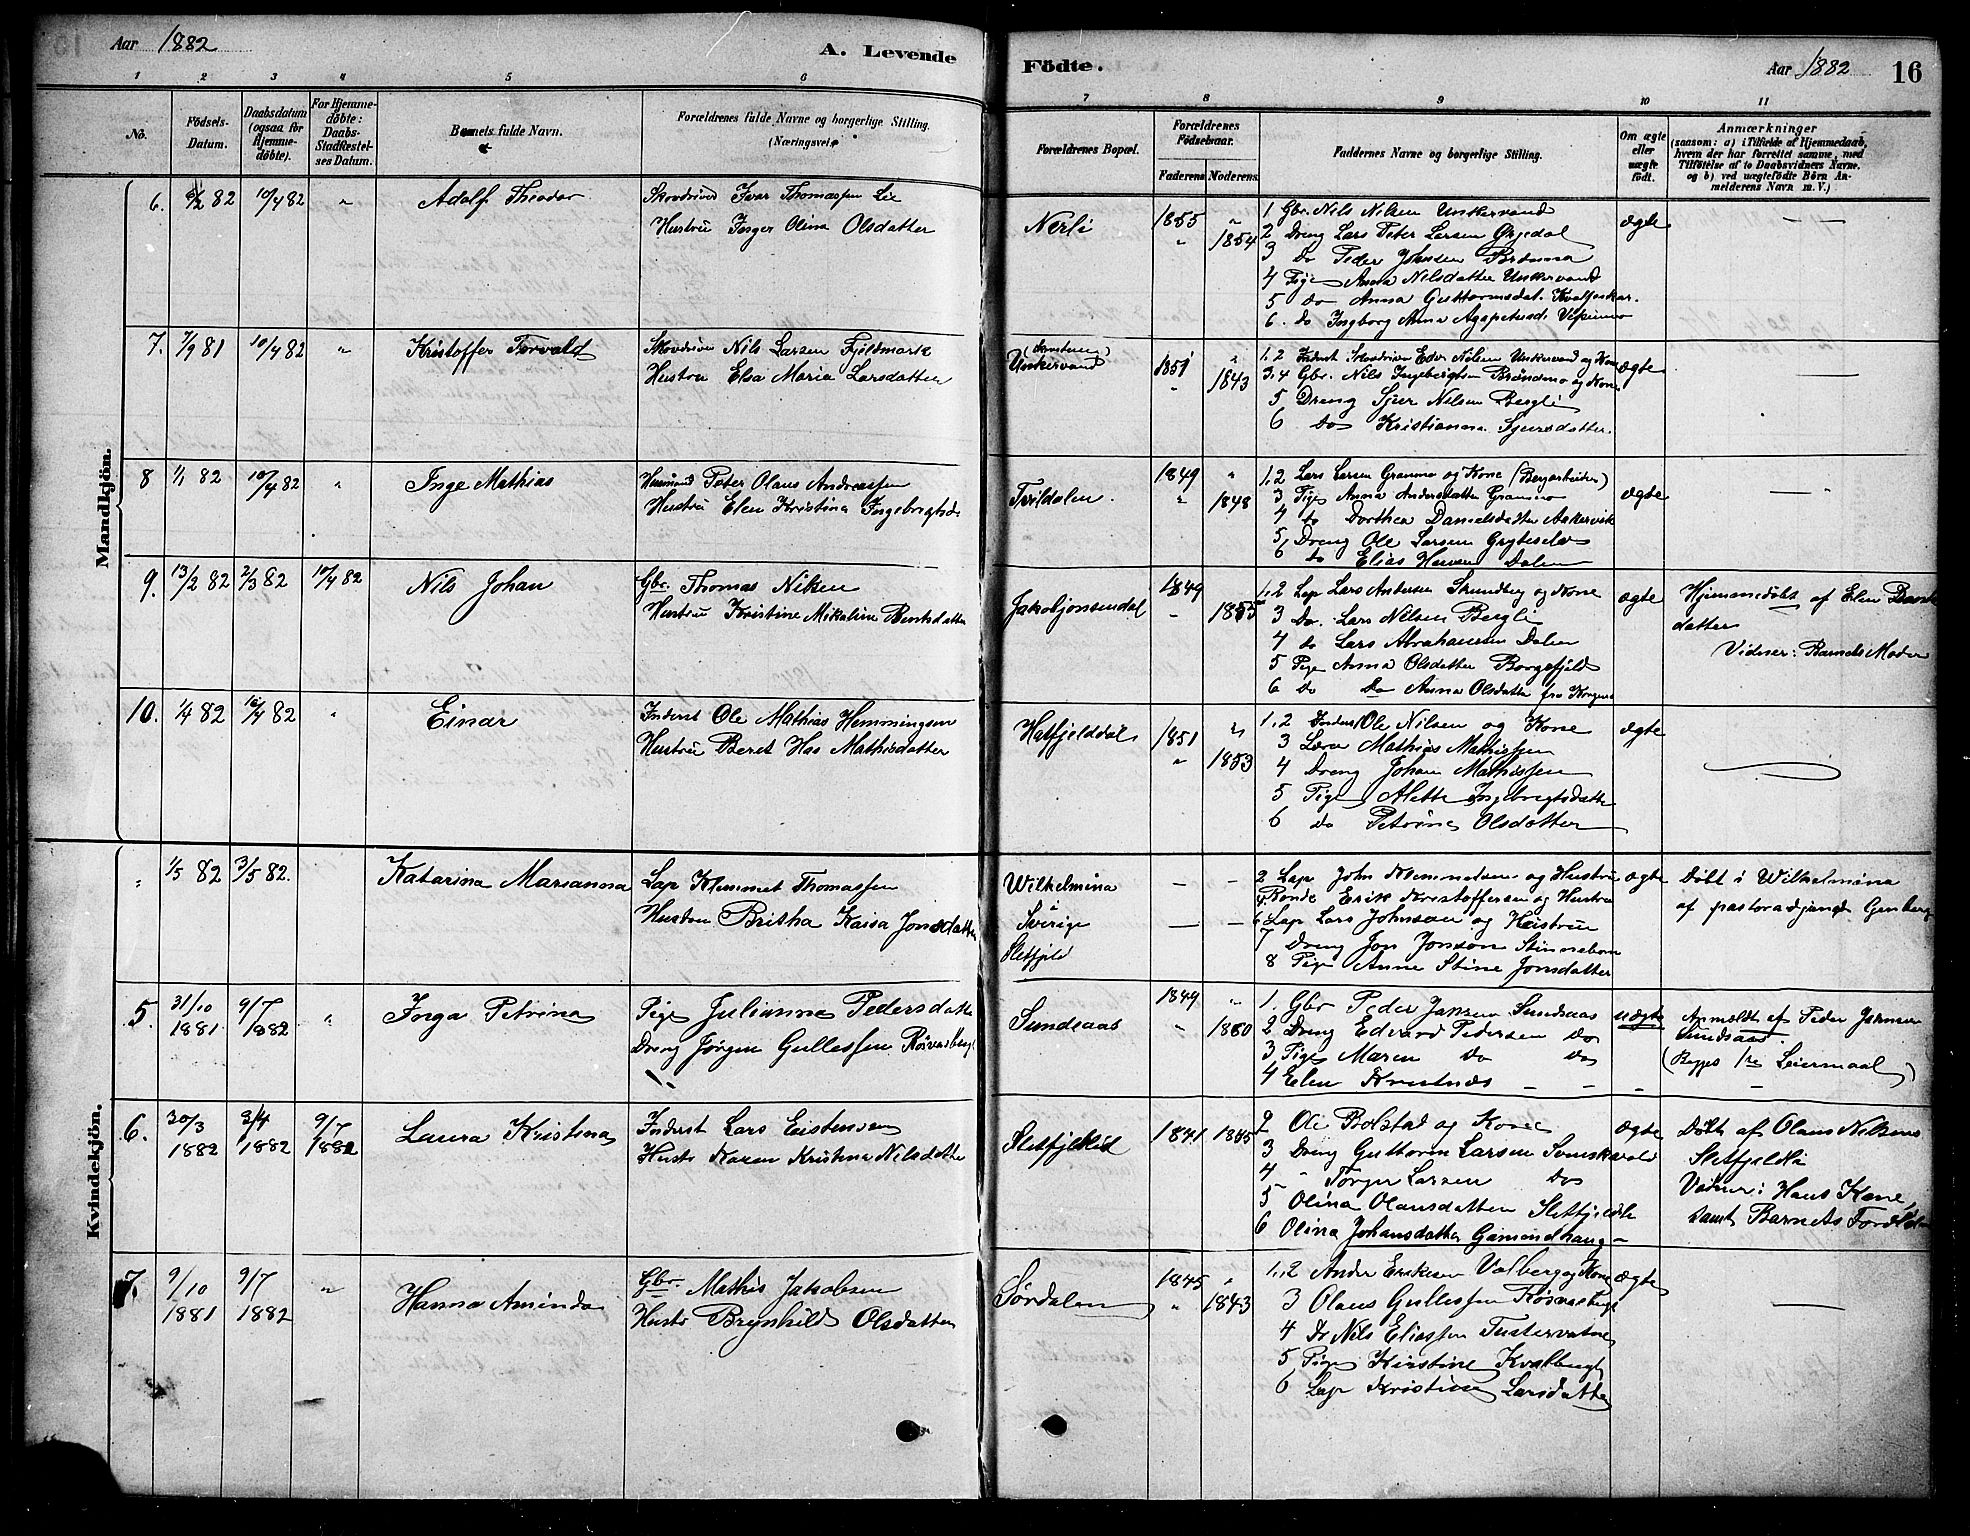 Aar 1882
A. Levende
Födte.
Aar 1882 16
1 2 3 4 5 6 7 8 9 10 11
No.
Födsels-
Datum.
Daabsdatum
(ogsaa for
Hjemme-
döbte).
For Hjemme-
döbte:
Daabs-
Stadfæstel-
ses Datum.
Barnets fulde Navn.
Forældrenes fulde Navne og borgerlige Stilling.
(Næringsvei.)
Forældrenes Bopæl.
Forældrenes
Födselsaar.
Faderens Moderens.
Faddernes Navne og borgerlige Stilling.
Om ægte
eller
uægte
födt.
Anmærkninger
(saasom: a) i Tilfælde af Hjemmedaab,
hvem der har forrettet samme, med
Tilföielse af to Daabsvidners Navne.
og b) ved uægtefödte Börn An-
melderens Navn m. V.)
Mandkjön.
6. 6/2 82 10/4 82 " Adolf Theodor
Skovdriver Ivar Thomassen Lie
Hustru Inger Olina Olsdatter
Nerli
1855 "
" 1854
1 Gbr. Nils Nilsen Unkervand
2 Dreng Lars Peter Larsen
3 Do Peder Johnsen
4 Pige Anna Nilsdatter Unkervand
5 do Anna Guttormsdat.
6. do Ingborg Anna
ægte
7. 7/9 81 10/4 82 " Kristoffer Torvald
Skovdriver Nils Larsen Fjeldmark
Hustru Elsa Maria Larsdatter
Unkervand
1851 "
" 1843
1,2 Inderst Skovdriver Edv. Nilsen Unkervand og Kone
3,4 Gbr. Nils Ingebrigtsen Brændmo og Kone
5 Dreng Sjur Nilsen Bergli
6 Do Kristianna Sjursdatter.
ægte
8 1/1 82 10/4 82 " Inge Mathias
Husmand Peter Olaus Andreassen
Hustru Elen Kristina Ingebrigtsd.
1849 "
" 1848
1,2 Lars Larsen Granmo og Kone (Bergarbeider)
3 Pige Anna Andersdatter Granmo
4 do Dorthea Danielsdatter Aakervik
5 Dreng Ole Larsen
6 Do Elias Hansen Dalen
ægte
9. 13/2 82 2/3 82 10/4 82 Nils Johan
Gbr. Thomas Nilsen
Hustru Kristine Mikaline Bentsdatter
Jakobjonsendal
1849
1855
1,2 Lap Lars Andersen Strundberg og Kone
3 Do. Lars Nilsen Bergli
4 do Lars Abrahamsen Dalen
5 Pige Anna Olsdatter Borgefjeld
6 Do Do Anna Olsdatter fra
ægte
Hjemmedöbt af Elen
datter
Vidner: Barnets Moder
10. 1/4 82 10/4 82 " Einar
Inderst Ole Mathias Hemmingsen
Hustru Beret Mathisdatter
Hatfjelddal
1851 "
" 1853
1,2 Inderst Ole Nilsen og Kone
3 Mathias Mathissen
4 Dreng Johan Mathissen
5 Pige Alette Ingebrigtsdatter
6 Do Petrine Olsdatter
ægte
Kvindekjön.
" 1/5 82 3/5 82. Katarina Marianna
Lap Klemmet Thomassen
Hustru Britha Kaisa Jonsdatter
Wilhelmina
i
Sverige
Sletfjeld
2 Lap John Klemmetsen og Hustru
4 Bonde Erik Kristoffersen og Hustru
6 Lap Lars Johnsen og Hustru
7 Dreng Jon Jonson
8 Pige Anne Stine Jonsdatter
ægte
Döbt i Wilhelmina
af pastoradjunct Genberg
5. 31/10 1881 9/7 1882 " Inga Petrina
Pige Julianne Pedersdatter
Dreng Jørgen Gullessen
Sundsaas
1849 "
" 1860
1. Gbr Peder Jansen Sundsaas
2 Dreng Edvard Pedersen Do
3 Pige Maren Do Do
4 Elen
uægte
Anmeldt af Peder Jansen
Sundsaas.
(Begges 1ste Leiermaal)
6. 30/3 1882 3/4 1882 9/7 1882 Laura Kristina
Inderst Lars Eistensen
Hustr Karen Kristina Nilsdatter
Sletfjeldlid
1841 1845
2 Ole Bolstad og Kone
3 Dreng Guttorm Larsen
4 " Torger Larsen Do
5 Olina Olausdatter Sletfjeldli
6 Olina Johansdatter
ægte
Döbt af Olaus Nilsens
Sletfjeldli
Vidner: Hans Kone,
samt Barnets Forældre
7. 9/10 1881 9/7 1882 " Hanna Aminda
Gbr. Mathis Jakobsen
Hustr Brynhild Olsdatter
Sørdalen
1845 "
" 1843
1,2 Ander Eriksen Valberg og Kone
3 Olaus Gullessen
4 Do Nils Eliassen Tustervatne
5 Pige Kirstine
6 Lap Kristine Larsdatter
ægte